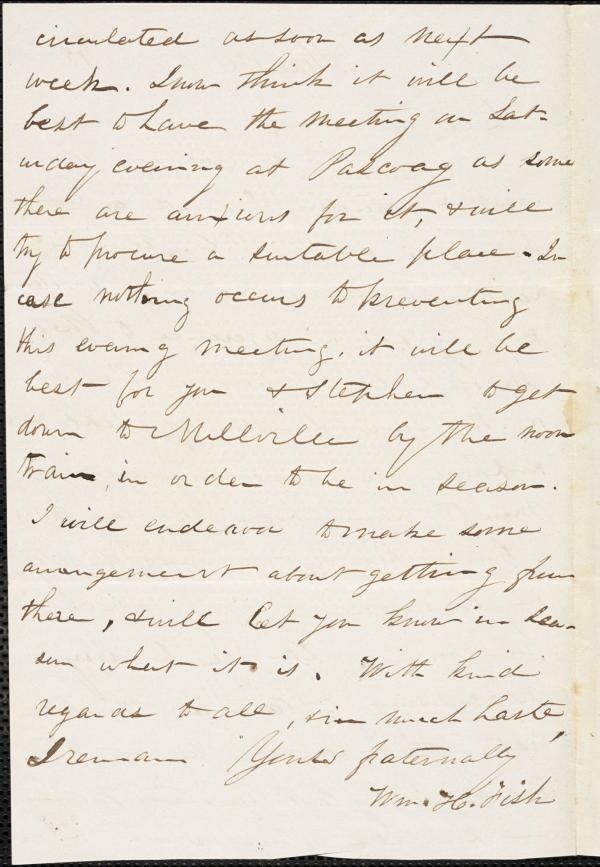 circulated as soon as next
week. I now think it will be
best to have the meeting on Sat-
urday evening at Pascoag as some
there are anxious for it, & will
try to procure a suitable place. In
case nothing occurs to preventing
this evening meeting, it will be
best for you & Stephen to get
down to Millville by the noon
train, in order to be in season.
I will endeavor to make some
arrangement about getting from
there, & will let you know in sea-
son what it is. With kind
regards to all, & in much haste,
I remain Yours fraternally
Wm. H. Fish